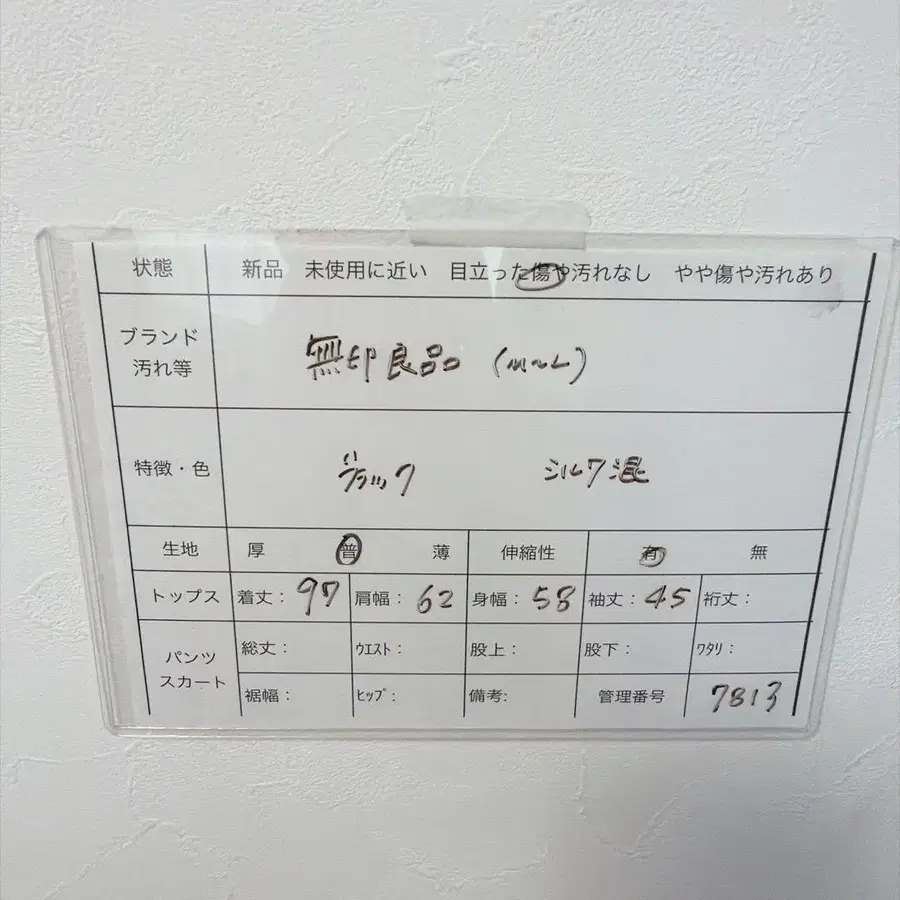 状態 新品 未使用に近い 目立った傷や汚れなし やや傷や汚れあり
ブランド
汚れ等 無印良品 (M~L)
特徴・色 ブラック シルク混
生地 厚 普 薄 伸縮性 有 無
トップス 着丈: 97 肩幅: 62 身幅: 58 袖丈: 45 裄丈:
パンツ
スカート 総丈: ウエスト: 股上: 股下: ワタリ:
裾幅: ヒップ: 備考: 管理番号 7813